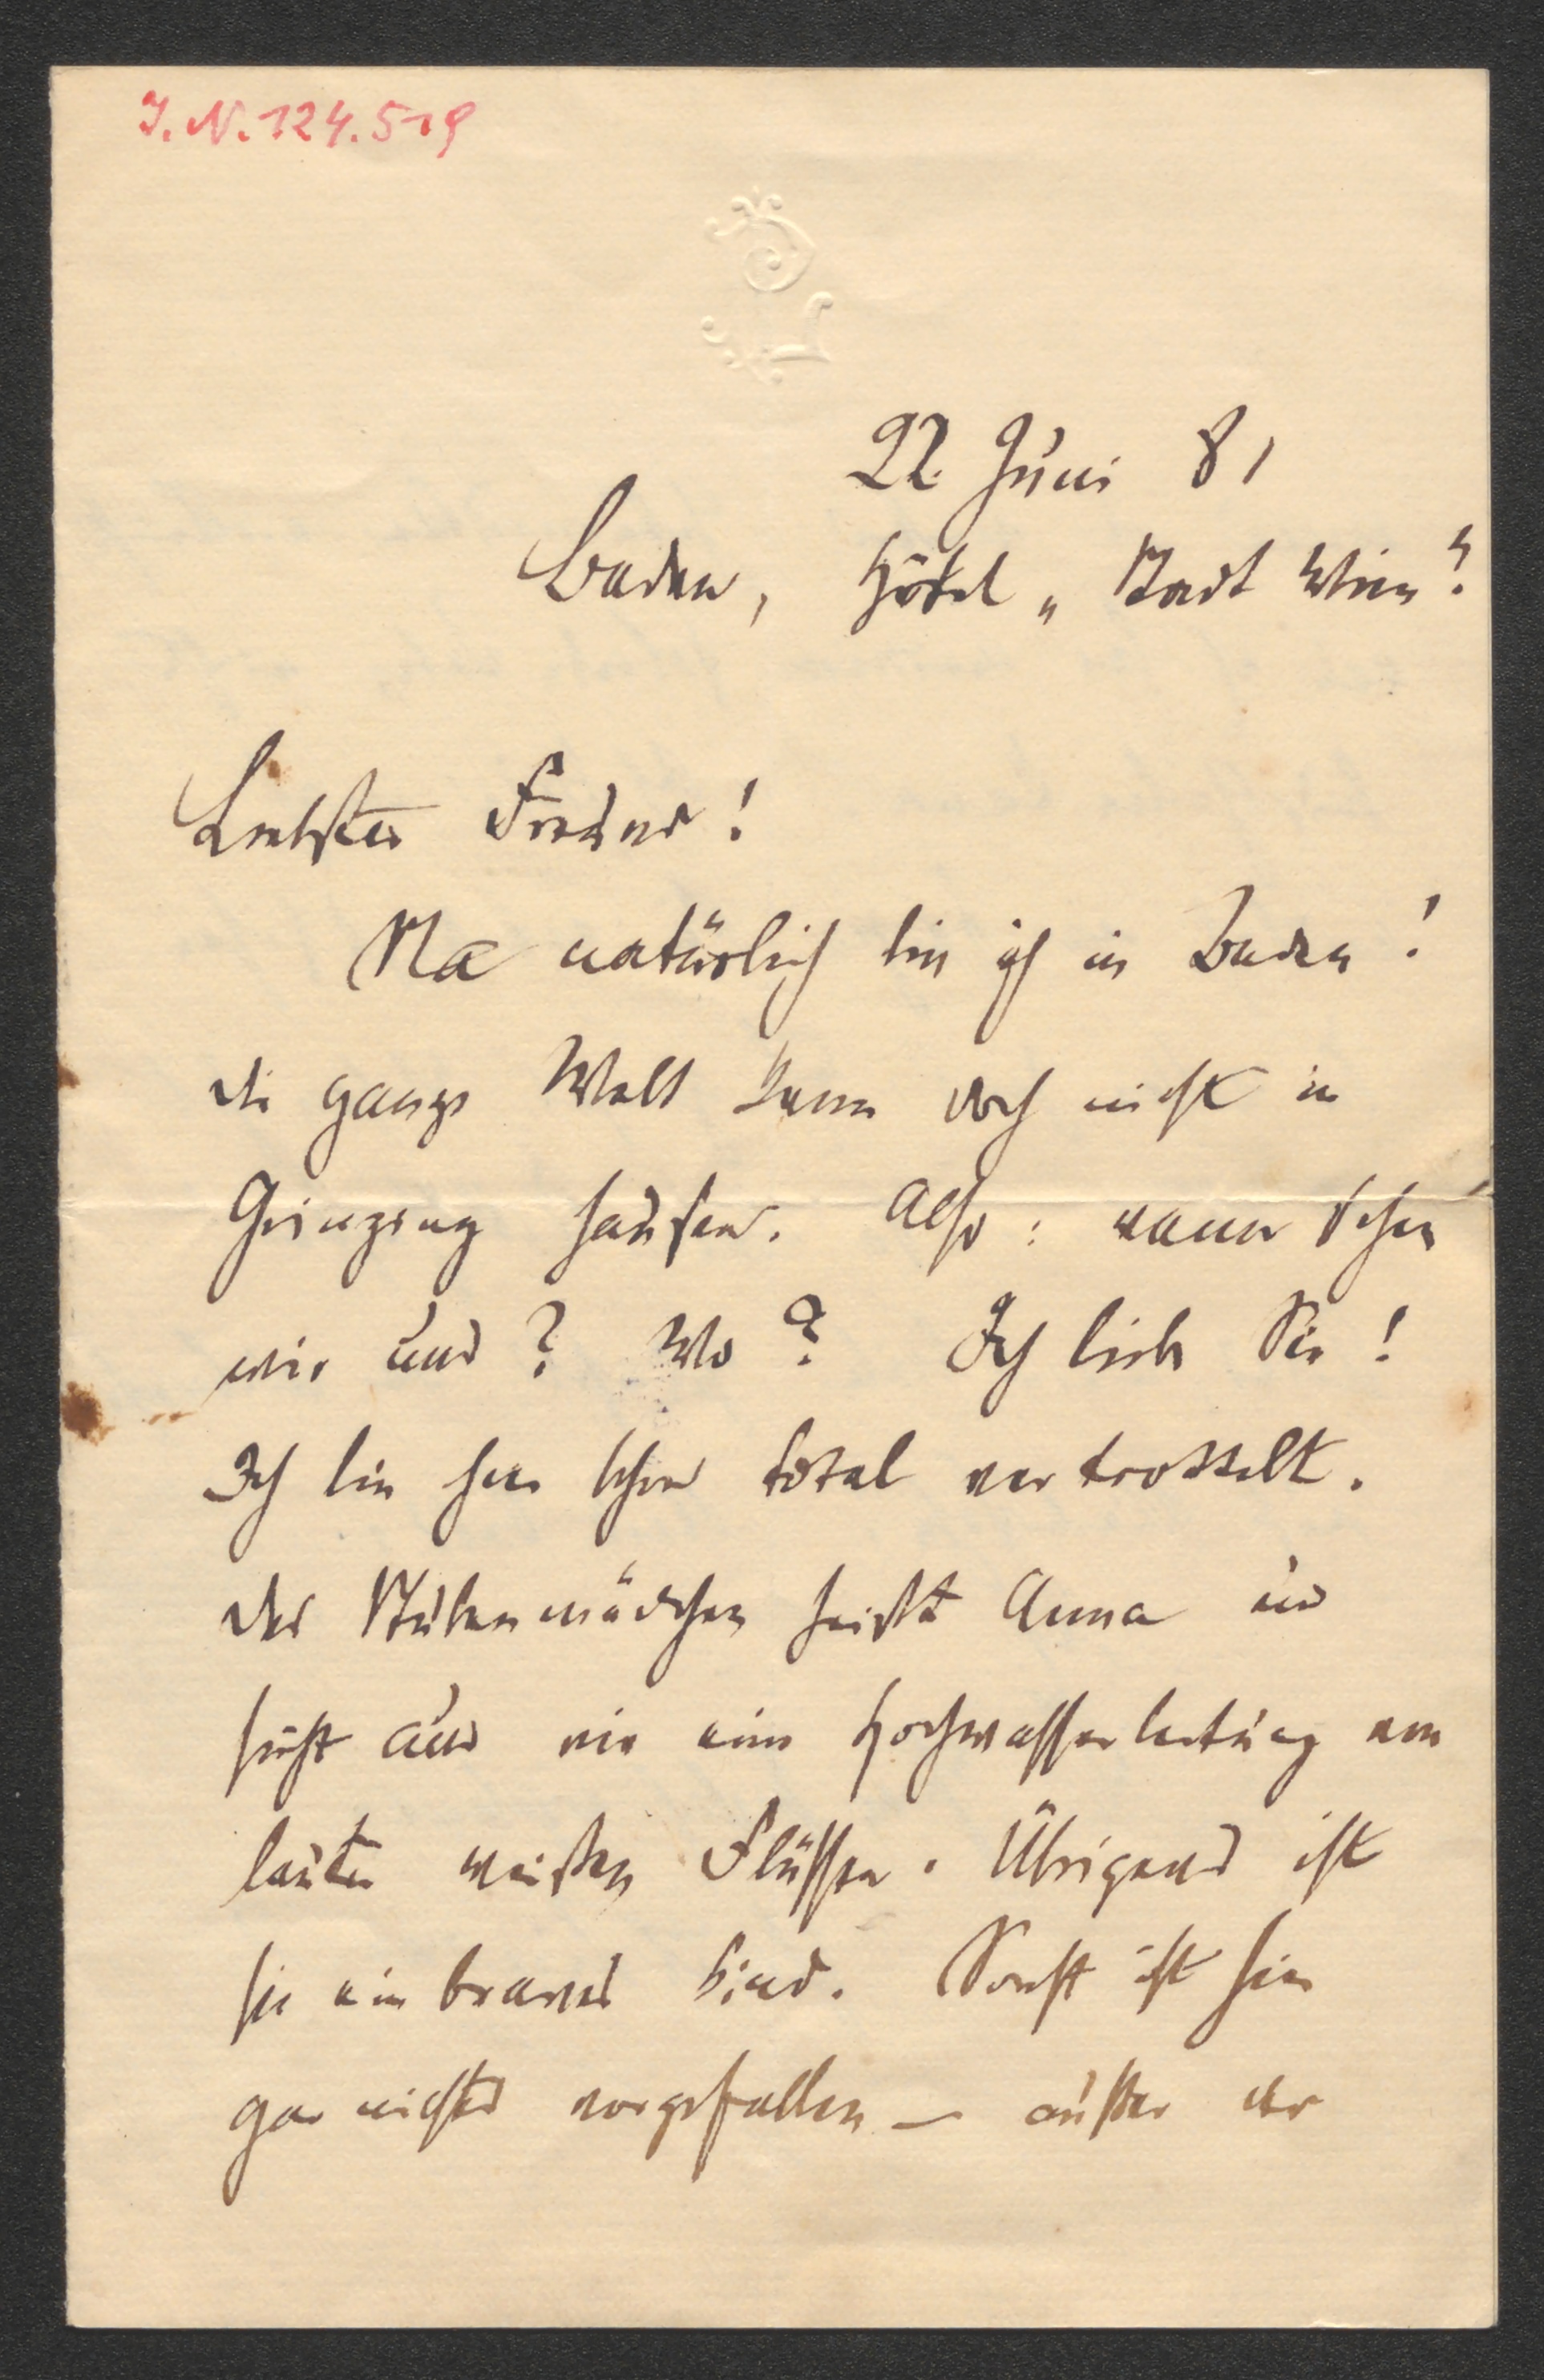 I. N. 124.519
22. Juni 81
Baden, Hôtel „Stadt Wien“.
Liebster Freund!
Na natürlich bin ich in Baden!
die ganze Welt kann doch nicht in
Grinzing hausen. Also: wann sehen
wir uns? Wo? Ich liebe Sie!
Ich bin hier schon total vertrottelt.
Das Stubenmädchen heißt Anna und
sieht aus wie eine Hochwasserleitung von
lauter weißen Flüssen. Übrigens ist
sie ein braves Kind. Sonst ist hier
gar nichts vorgefallen – außer der